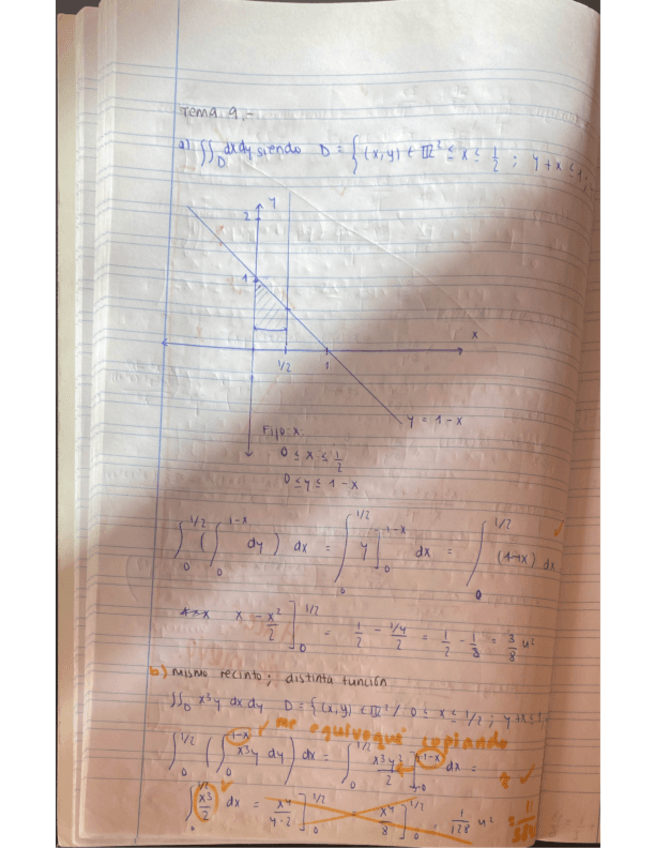 Tema 9.-
a) ∬_D dxdy siendo D = { (x,y) ∈ ℝ² ≤ x ≤ 1/2 ; y + x ≤ 1;
y
2
1
x
1/2 1
y = 1 - x
Fijo x:
0 ≤ x ≤ 1/2
0 ≤ y ≤ 1 - x
∫_0^{1/2} ( ∫_0^{1-x} dy ) dx = ∫_0^{1/2} y ]_0^{1-x} dx = ∫_0^{1/2} (1-x) dx
x - x²/2 ]_0^{1/2} = 1/2 - (1/4)/2 = 1/2 - 1/8 = 3/8 u²
b) mismo recinto; distinta función
∬_D x³y dx.dy D = { (x,y) ∈ ℝ² / 0 ≤ x ≤ 1/2 ; y + x ≤ 1
me equivoqué copiando
∫_0^{1/2} ( ∫_0^{1-x} x³y dy ) dx = ∫_0^{1/2} x³y²/2 ]_0^{1-x} dx =
∫_0^{1/2} x³/2 dx = x⁴/4·2 ]_0^{1/2} = x⁴/8 ]_0^{1/2} = 1/128 u²